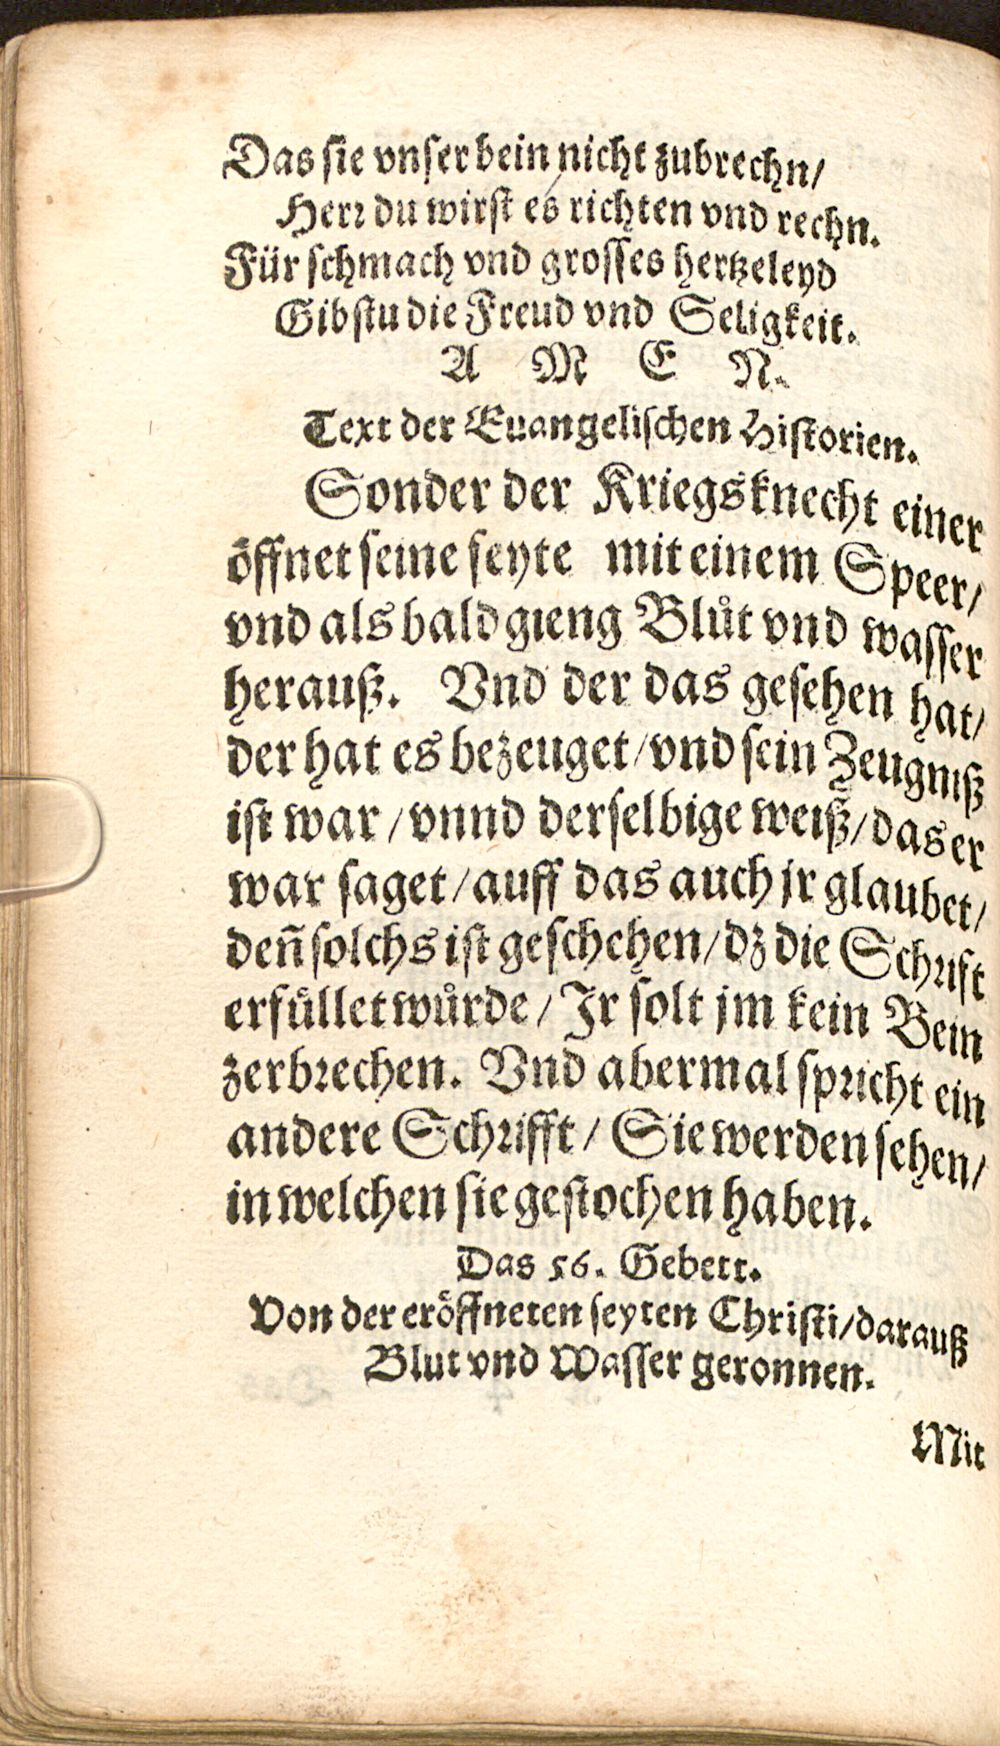 Das sie vnser bein nicht zubrechn/
Herr du wirst es richten vnd rechn.
Für schmach vnd grosses hertzeleyd
Gibstu die Freud vnd Seligkeit.
A M E N.
Text der Euangelischen Historien.
Sonder der Kriegsknecht einer
öffnet seine seyte mit einem Speer/
vnd als bald gieng Blůt vnd wasser
herauß. Vnd der das gesehen hat/
der hat es bezeuget/vnd sein Zeugniß
ist war/vnnd derselbige weiß/das er
war saget/auff das auch jr glaubet/
deñ solchs ist geschehen/dz die Schrift
erfüllet würde/Jr solt jm kein Bein
zerbrechen. Vnd abermal spricht ein
andere Schrifft/Sie werden sehen/
in welchen sie gestochen haben.
Das 56. Gebett.
Von der eröffneten seyten Christi/darauß
Blut vnd Wasser geronnen.
Mit